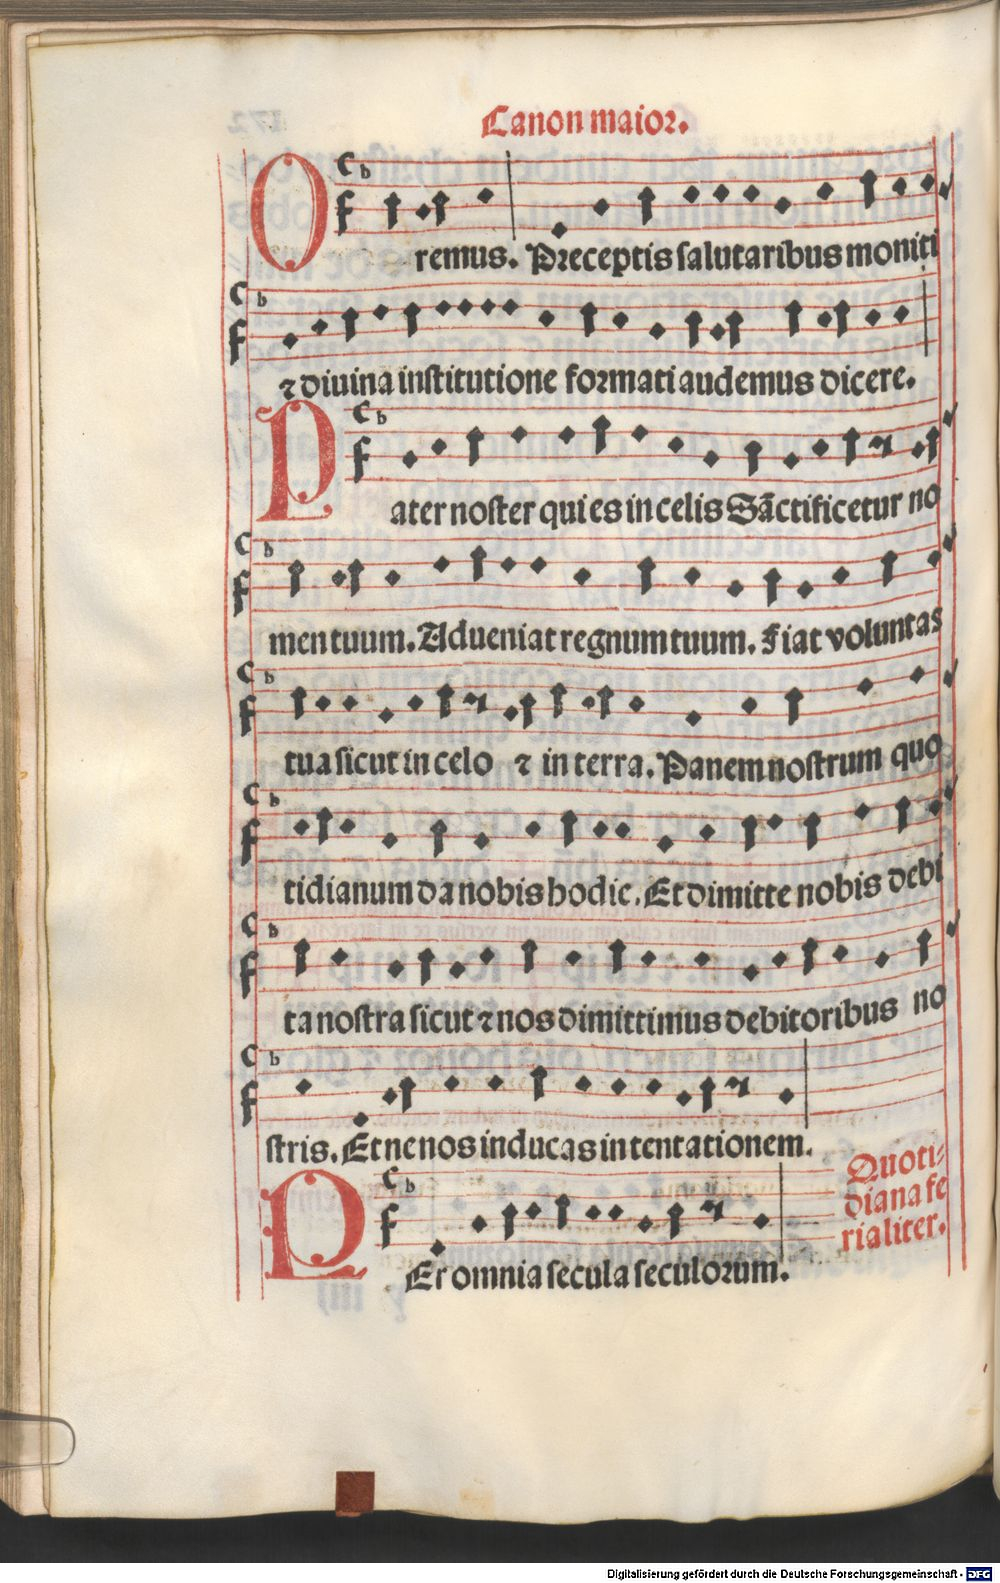 Canon maior.
Oremus. Preceptis salutaribus moniti
⁊ diuina institutione formati audemus dicere.
Pater noster qui es in celis Sãctificetur no
men tuum. Adueniat regnum tuum. Fiat voluntas
tua sicut in celo ⁊ in terra. Panem nostrum quo
tidianum da nobis hodie. Et dimitte nobis debi
ta nostra sicut ⁊ nos dimittimus debitoribus no
stris. Et ne nos inducas in tentationem.
Quoti-
diana fe
rialiter.
PEr omnia secula seculorum.
Digitalisierung gefördert durch die Deutsche Forschungsgemeinschaft - DFG